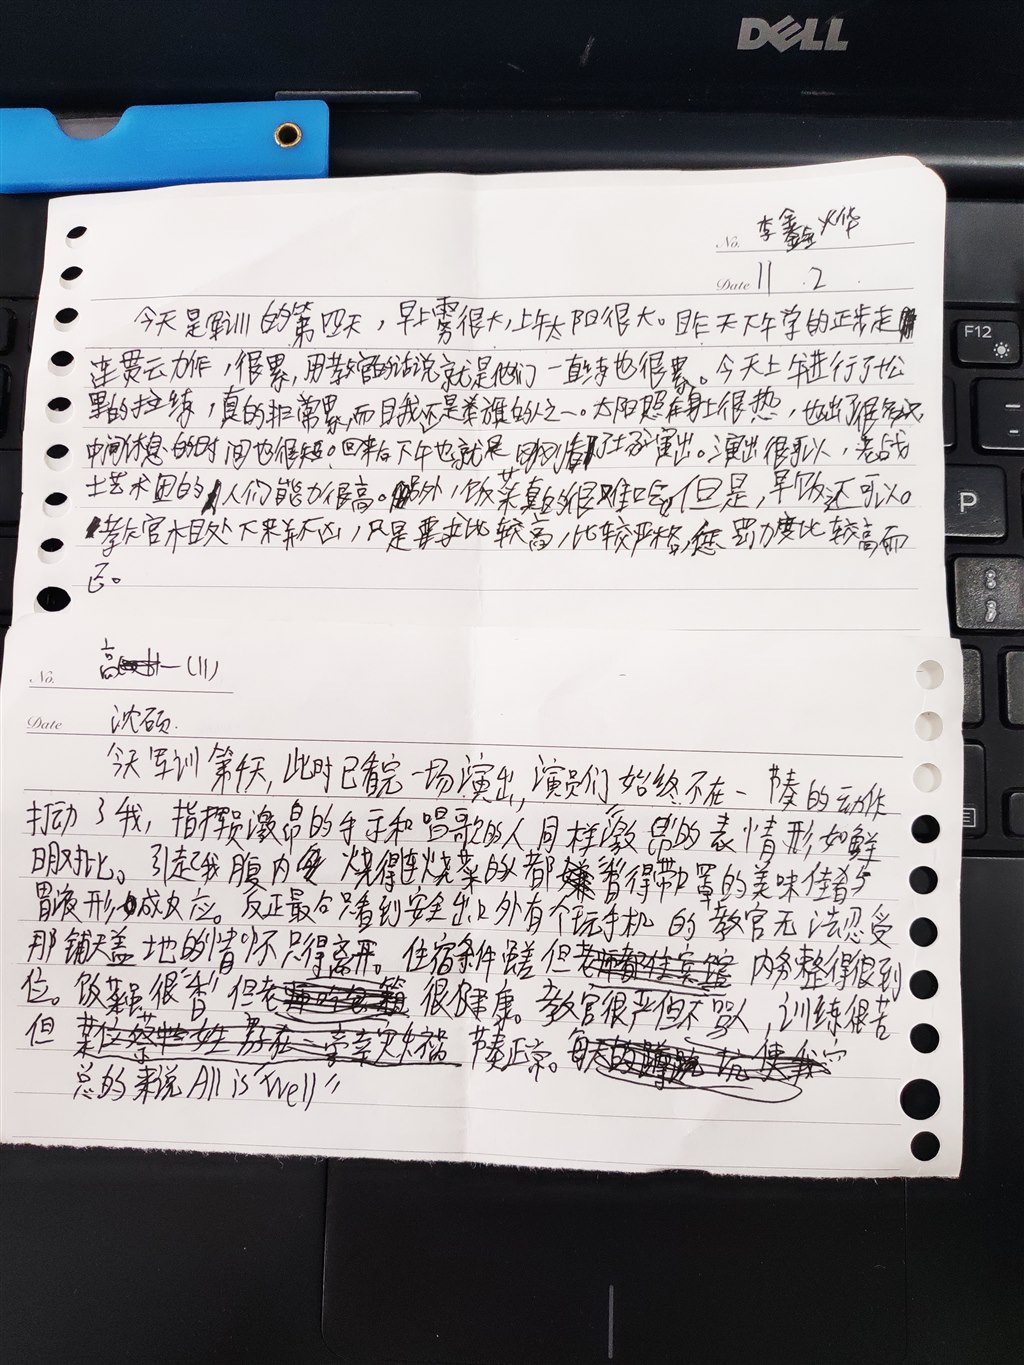 DELL
F12
P
No. 李鑫烨
Date 11.2
今天是军训的第四天，早上雾很大，上午太阳很大。昨天下午学的正步走
连贯云力作，很累，用教官的话说就是他们一直练也很累。今天上午进行了十公
里的拉练，真的非常累，而且我还是举旗的之一。太阳照在身上很热，也出了很多汉
中间休息的时间也很短。回来后下午也就是刚刚看了士兵演出。演出很可以，老战
士艺术团的人们能力很高。另外，饭菜真的很难吃，但是，早饭还可以。
教官相处下来并不凶，只是要求比较高，比较严格，惩罚力度比较高而
已。
No. 高一(11)
Date 沈硕.
今天军训第4天，此时已看完一场演出，演员们始终不在一节奏的动作
打动了我，指挥员激昂的手手和唱歌的人同样激昂的表情形如鲜
明对比。引起我腹内烧得连烧菜的都暂得带罩的美味佳肴与
胃液形成反应。反正最后只看到安全出口外有个玩手机的教官无法忍受
那铺天盖地的情怀只得离开。住宿条件差但老师都住宾馆内务整得很到
位。饭菜很“香”但老很健康。教官很严但不骂人，训练很苦
但节奏正常。
总的来说All is “Well”